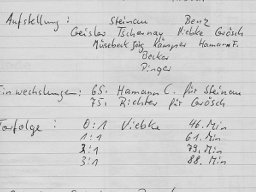 Aufstellung : Steinau Benz
Geisler Tschernay Viebke Grösch
Müsebeck Jörg Kämpfer Hamann F.
Becker
Pinger
Einwechslungen: 65. Hamann C. für Steinau
75. Richter für Grösch
Torfolge : 0:1 Viebke 46. Min
1:1 61. Min
2:1 79. Min
3:1 88. Min